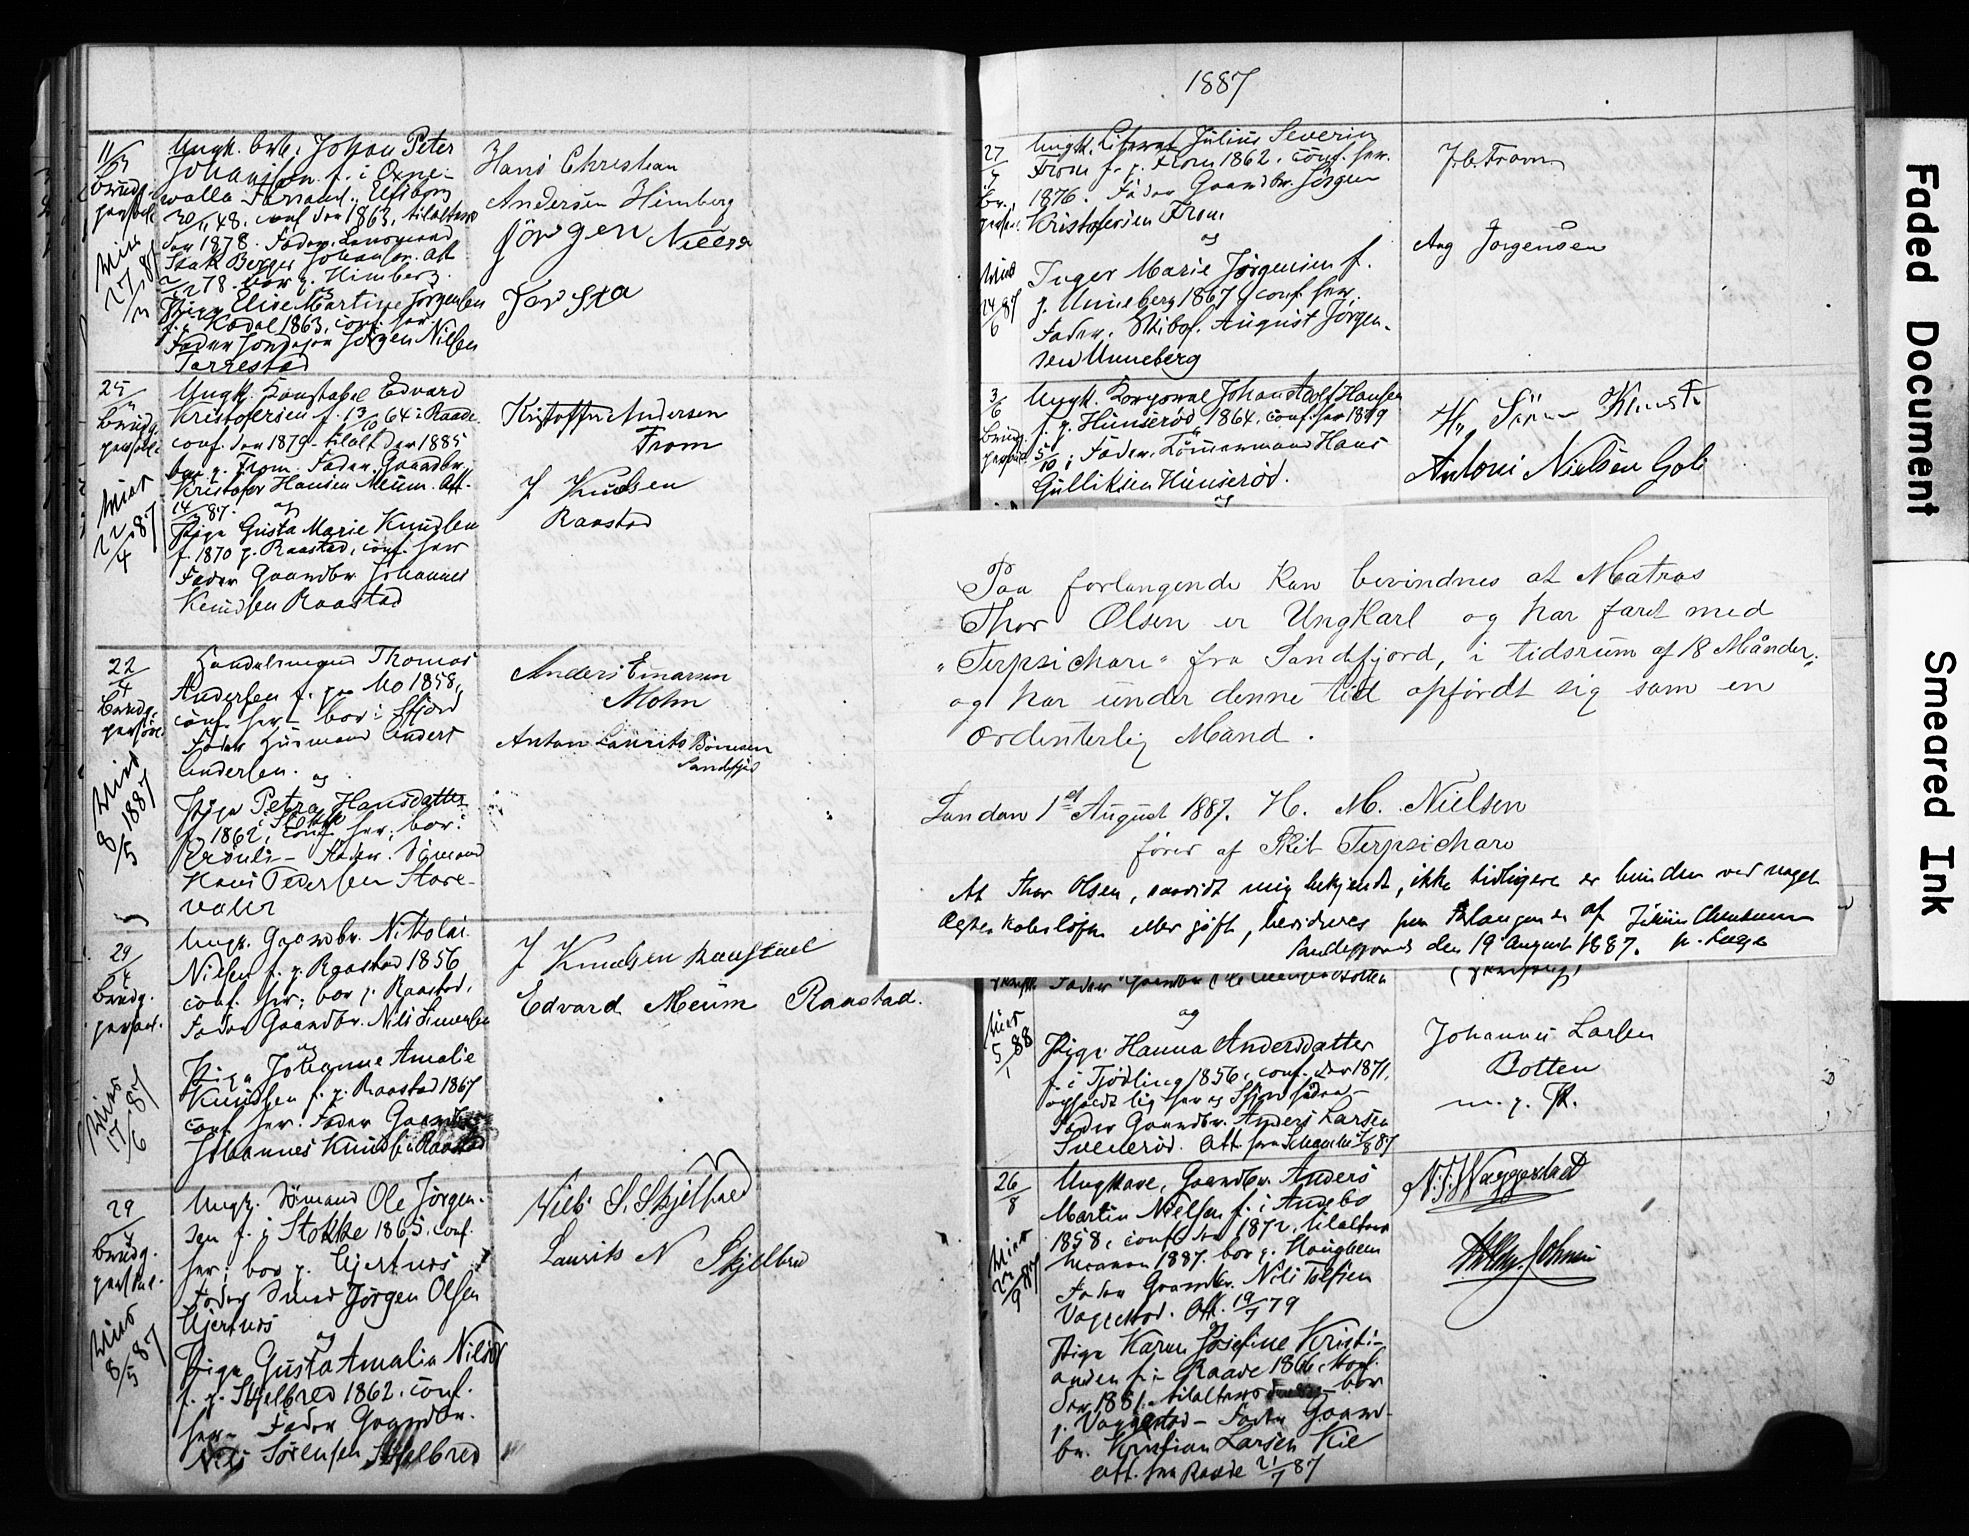 1887
11/3
Brudg.
personl.
Viet
27/3 87
Ungk. Arb. Johan Peter
Johansen f. i Oxne-
valla Forsaml., Elfsborg
30/11 48. conf. der 1863. tilalters
der 1878. Fader. Lensmand
Isak Berger Johanson. Att
78. bor p. Himberg.
Pige Elise Martine Jørgensen
f. p. Kodal 1863, conf. her.
Fader Jordejer Jørgen Nilsen
Torrestad
Hans Christian
Andersen Himberg
Jörgen Nielsen
Torsta
25/3
Brudg.
personl.
Viet
22/4 87
Ungk. Konstabel Edvard
Kristofersen f. 13/10 64 i Raade
conf. der 1879 - tilalt. der 1885
bor p. From. Fader. Gaardbr.
Kristofer Hansen Meum. Att.
14/3 87. og
Pige Gusta Marie Knudsen
f. 1870 p. Raastad, conf. her
Fader Gaardbr Johannes
Knudsen Raastad
Kristoffer Andersen
From
J Knudsen
Raastad
22/4
Brudg.
personl.
Viet
8/5 1887
Handelsmand Thomas
Andersen f. paa Mo 1858,
conf. her - bor i Sfjord
Fader Husmand Anders
Andersen. og
Pige Petra Hansdatter
f. 1862 i Stokke, conf. her, bor i
Fader. Sømand
Hans Pedersen Store-
valler
Anders Einarsen
Mohn
Anton Laurits Børresen
Sandefjord
29/4
Brudg.
personl.
Viet
17/6 87
Ungk. Gaardbr. Nikolai
Nilsen f. p. Raastad 1856
conf. her; bor p. Raastad,
Fader Gaardbr. Nils Simensen
og
Pige Johanne Amalie
Knudsen f. p. Raastad 1867
conf. her. Fader Gaardbr.
Johannes Knudsen Raastad
J Knudsen Raastad
Edvard Meum Raastad.
29/4
Brudg.
personl.
Viet
8/5 87
Ungk. Sømand Ole Jörgen-
sen f. i Stokke 1865. conf.
her; bor p. Gjertnes
Fader Smed Jörgen Olsen
Gjertnes
og
Pige Gusta Amalia Nilsen
f. p. Skjelbred 1862. conf.
her - Fader Gaardbr.
Nils Sörensen Skjelbred
Niels S. Skjelbred
Laurits N Skjelbred
27/5
Br.
personl.
Viet
24/6 87
Ungk. Julius Severin
From f. p. From 1862. conf. her.
1876. Fader Gaardbr. Jörgen
Kristofersen From
og
Inger Marie Jörgensen f.
p. Unneberg 1867, conf. her.
Fader. Skibsf. August Jörgen-
sen Unneberg
J. C. From
Aug Jørgensen
3/6
Brudg.
personl.
Ungk. Korporal Johan Adolf Hansen
f. p. Hunserød 1864. conf. her 1879
5/10; Fader. Tømmermand Hans
Gulliksen Hunserød.
og
Antoni Nielsen Goli
Paa forlangende kan bevindnes at Matros
Thor Olsen er UngKarl og har faret med
"Terpsichore" fra Sandefjord, i tidsrum af 18 Månder;
og har under denne tid opfördt sig som en
ordenterlig Mand.
London 1st August 1887. H. M. Nielsen
förer af Skib Terpsichore
At Thor Olsen, saavidt mig bekjendt, ikke tidligere er bunden ved noget
Ægteskabsløfte eller gift, bevidnes paa Forlangende af
Sandefjord den 19 August 1887.
Viet
5/1 88
og
Pige Hanna Andersdatter
f. i Tjødling 1856, conf. der 1871,
opholdt sig her og Sfjord siden -
Fader Gaardbr. Anders Larsen
Svenerød. Att. fra
Johannes Larsen
Botten
m. p. P.
26/8
Viet
27/9 87
Ungkarl, Gaardbr. Anders
Martin Nielsen f. i Andebo
1858, conf. der 1872, tilalters
hersammen 1887. bor p. Haughem
Fader Gaardbr. Nils Tolfsen
Vaggestad. Att. 19/7 79
og
Pige Karen Josefine Kristi-
ansen f. i Raade 1866. conf.
der 1881. tilalters bor
p. Vaggestad - Fader Gaard-
br. Kristian Larsen Kil
Att. fra Raade 21/7 87
N. T. Waggestad
Faded Document
Smeared Ink